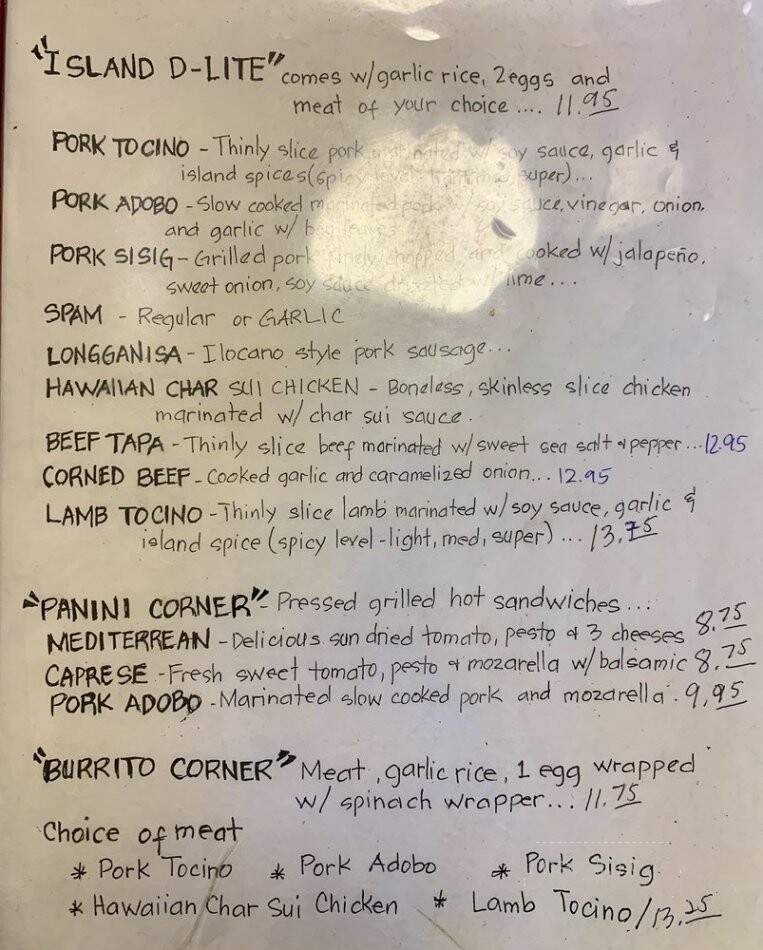 "ISLAND D-LITE" comes w/garlic rice, 2 eggs and
meat of your choice .... 11.95
PORK TOCINO - Thinly slice pork marinated w/ soy sauce, garlic &
island spices (spicy level light, med, super)...
PORK ADOBO - Slow cooked marinated pork w/ soy sauce, vinegar, onion,
and garlic w/ bay leaves
PORK SISIG - Grilled pork finely chopped and cooked w/ jalapeño,
sweet onion, soy sauce drizzled w/ lime...
SPAM - Regular or GARLIC
LONGGANISA - Ilocano style pork sausage...
HAWAIIAN CHAR SUI CHICKEN - Boneless, skinless slice chicken
marinated w/ char sui sauce.
BEEF TAPA - Thinly slice beef marinated w/ sweet sea salt & pepper...12.95
CORNED BEEF - Cooked garlic and caramelized onion... 12.95
LAMB TOCINO - Thinly slice lamb marinated w/ soy sauce, garlic &
island spice (spicy level - light, med, super) ... 13.75
"PANINI CORNER" - Pressed grilled hot sandwiches ...
MEDITERREAN - Delicious sun dried tomato, pesto & 3 cheeses 8.75
CAPRESE - Fresh sweet tomato, pesto & mozarella w/ balsamic 8.75
PORK ADOBO - Marinated slow cooked pork and mozarella . 9.95
"BURRITO CORNER" Meat, garlic rice, 1 egg wrapped
w/ spinach wrapper... 11.75
Choice of meat
* Pork Tocino * Pork Adobo * Pork Sisig
* Hawaiian Char Sui Chicken * Lamb Tocino / 13.25